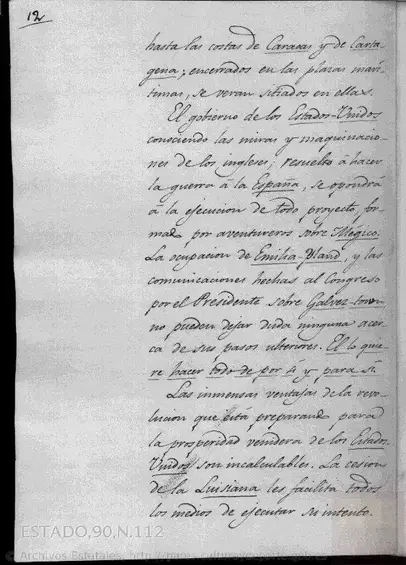 12
hasta las costas de Caracas y de Carta-
gena; encerrados en las plazas marí-
timas, se veran sitiados en ellas.
El gobierno de los Estados-Unidos
conociendo las miras y maquinacio-
nes de los ingleses; resuelto á hacer
la guerra á la España, se opondrá
á la ejecucion de todo proyecto for-
mado por aventureros sobre Megico.
La ocupacion de Emilia-Yland, y las
comunicaciones hechas al Congreso
por el Presidente sobre Galvez-town
no pueden dejar duda ninguna acer-
ca de sus pasos ulteriores. El lo quie-
re hacer todo de por si y para si.
Las inmensas ventajas de la revo-
lucion que está preparando para
la prosperidad venidera de los Estados-
Unidos son incalculables. La cesion
de la Luisiana les facilita todos
los medios de ejecutar su intento.
ESTADO,90,N.112
© Archivos Estatales,